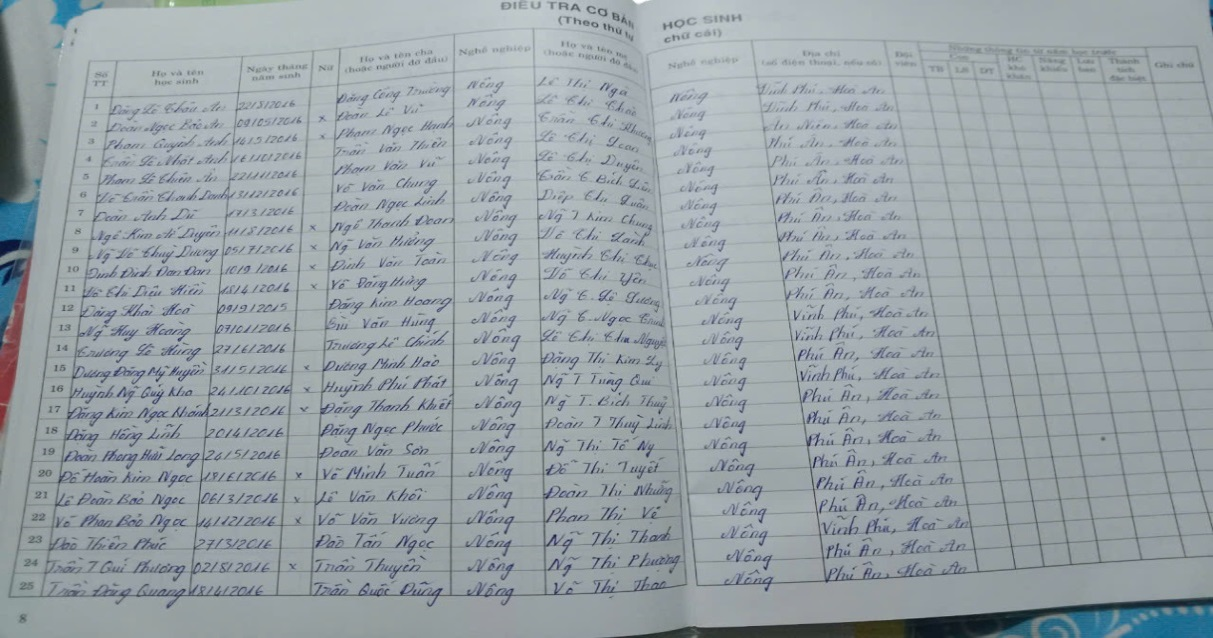 ĐIỀU TRA CƠ BẢN HỌC SINH
(Theo thứ tự chữ cái)
Số TT Họ và tên học sinh Ngày tháng năm sinh Nữ Họ và tên cha (hoặc người đỡ đầu) Nghề nghiệp Họ và tên mẹ (hoặc người đỡ đầu) Nghề nghiệp Địa chỉ (số điện thoại, nếu có) Đội viên Những thông tin từ năm học trước
Con HC khó khăn Năng khiếu Lưu ban Thành tích đặc biệt Ghi chú
TB LS DT
1 Đặng Lê Châu An 22/3/2016 Đặng Công Trường Nông Lê Thị Nga Nông Vĩnh Phú, Hoà An
2 Đoàn Ngọc Bảo An 09/05/2016 x Đoàn Lê Vũ Nông Lê Thị Nông Vĩnh Phú, Hoà An
3 Phạm Quỳnh Anh 14/5/2016 x Phạm Ngọc Hanh Nông Trần Thị Nông An Niên, Hoà An
4 Trần Lê Nhật Anh 16/10/2016 Trần Văn Thiên Nông Lê Thị Loan Nông Phú Ân, Hoà An
5 Phạm Lê Thiên Ân 22/11/2016 Phạm Văn Vũ Nông Lê Thị Duyên Nông Phú Ân, Hoà An
6 Võ Trần Thanh Danh 13/12/2016 Võ Văn Chung Nông Trần T. Bích Liên Nông Phú Ân, Hoà An
7 Đoàn Anh Dũ 17/3/2016 Đoàn Ngọc Linh Nông Diệp Thị Nông Phú Ân, Hoà An
8 Ngô Kim Mĩ Duyên 11/8/2016 x Ngô Thanh Đoan Nông Ng T Kim Chung Nông Phú Ân, Hoà An
9 Ng Võ Thuỳ Dương 05/7/2016 x Ng Văn Hưởng Nông Võ Thị Lành Nông Phú Ân, Hoà An
10 Đinh Đinh Đan Đan 10/9/2016 x Đinh Văn Toàn Nông Huỳnh Thị Nông Phú Ân, Hoà An
11 Võ Thị Diệu Hiền 18/4/2016 x Võ Đăng Hưng Nông Võ Thị Yên Nông Phú Ân, Hoà An
12 Đặng Khải Hoà 09/9/2015 Đặng Kim Hoang Nông Ng T. Lê Nông Vĩnh Phú, Hoà An
13 Ng Huy Hoàng 07/01/2016 Bùi Văn Hùng Nông Ng T. Ngọc Nông Vĩnh Phú, Hoà An
14 Trương Lê Hùng 27/6/2016 Trương Lê Chính Nông Lê Thị Thu Nguyệt Nông Phú Ân, Hoà An
15 Dương Đặng Mỹ Huyền 31/5/2016 x Dương Minh Hảo Nông Đặng Thị Kim Ly Nông Vĩnh Phú, Hoà An
16 Huỳnh Ng Quý Kha 24/10/2016 x Huỳnh Phú Phát Nông Ng T Tùng Qui Nông Phú Ân, Hoà An
17 Đặng Kim Ngọc Khánh 21/3/2016 x Đặng Thanh Khiết Nông Ng T. Bích Thuỷ Nông Phú Ân, Hoà An
18 Đặng Hồng Lĩnh 20/4/2016 Đặng Ngọc Phước Nông Đoàn T Thuỳ Linh Nông Phú Ân, Hoà An
19 Đoàn Phong Hải Long 26/5/2016 Đoàn Văn Sơn Nông Ng Thị Tố Ny Nông Phú Ân, Hoà An
20 Đỗ Hoàn Kim Ngọc 18/6/2016 x Võ Minh Tuấn Nông Đỗ Thị Tuyết Nông Phú Ân, Hoà An
21 Lê Đoàn Bảo Ngọc 06/3/2016 x Lê Văn Khôi Nông Đoàn Thị Nhưỡng Nông Phú Ân, Hoà An
22 Võ Phan Bảo Ngọc 14/12/2016 x Võ Văn Vương Nông Phan Thị Vệ Nông Vĩnh Phú, Hoà An
23 Đào Thiên Phúc 27/3/2016 Đào Tấn Ngọc Nông Ng Thị Thanh Nông Phú Ân, Hoà An
24 Trần T Quí Phương 02/8/2016 x Trần Thuyền Nông Ng Thị Phương Nông Phú Ân, Hoà An
25 Trần Đăng Quang 18/4/2016 Trần Quốc Dũng Nông Võ Thị Thao Nông
8